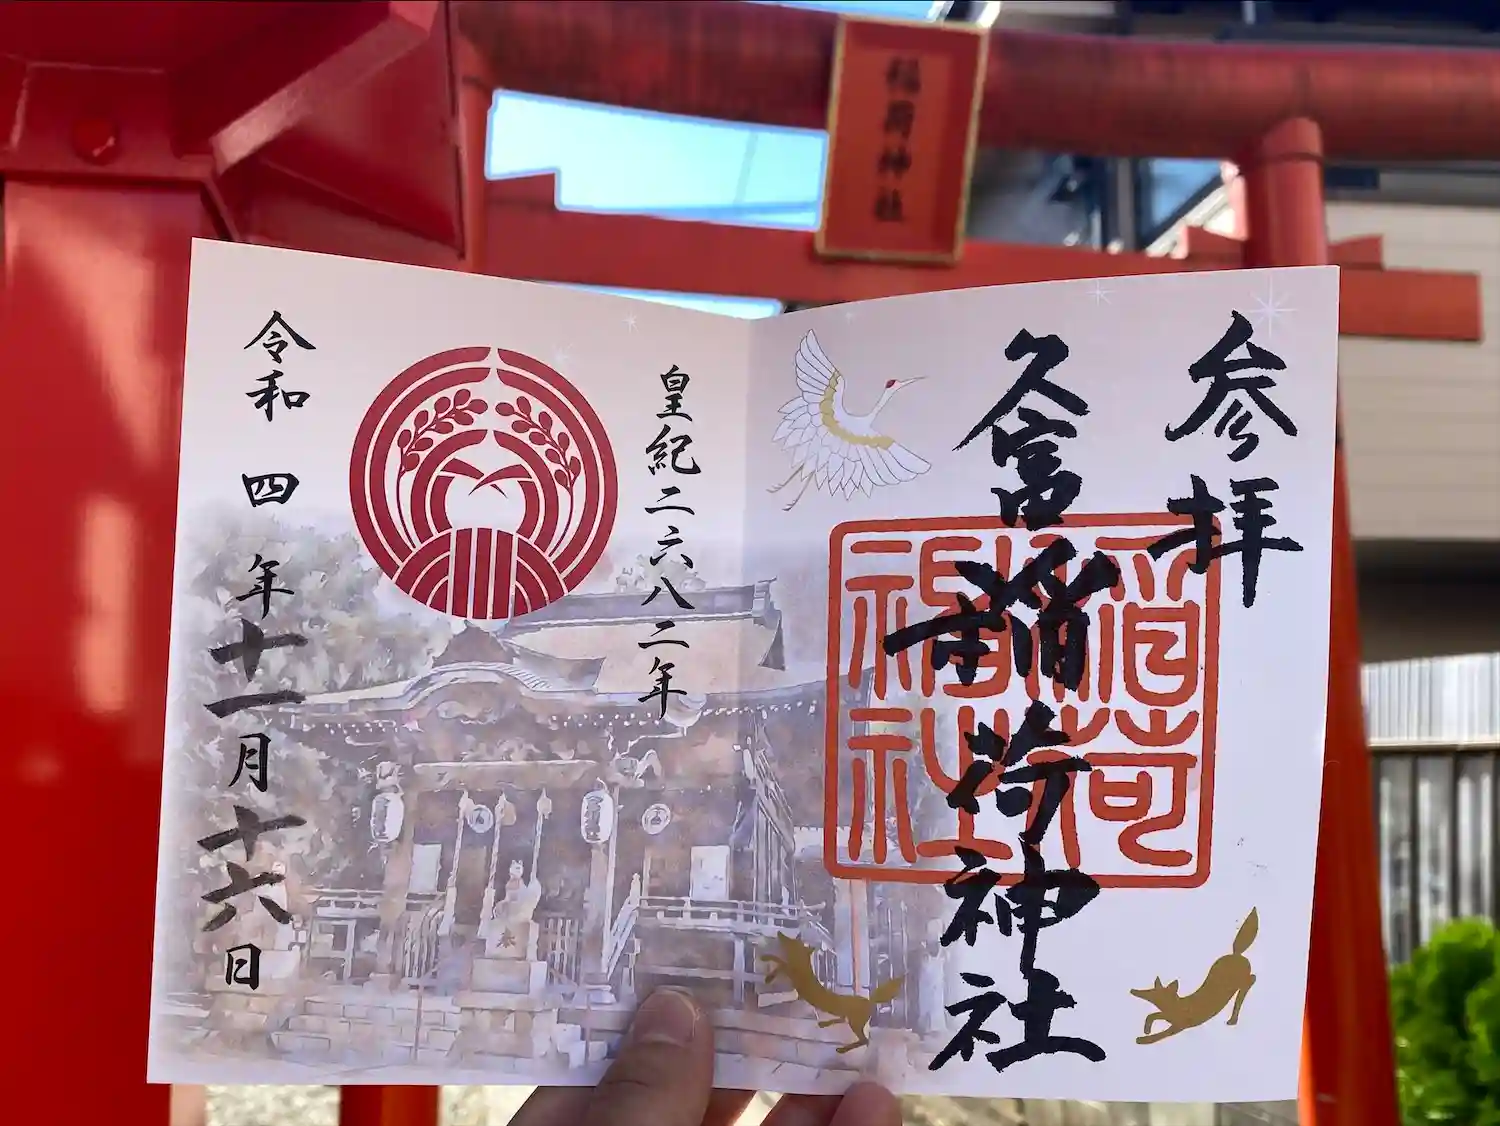 稲荷神社
参拝
久富稲荷神社
稲荷
神社
皇紀二六八二年
令和 四 年十一月十六日